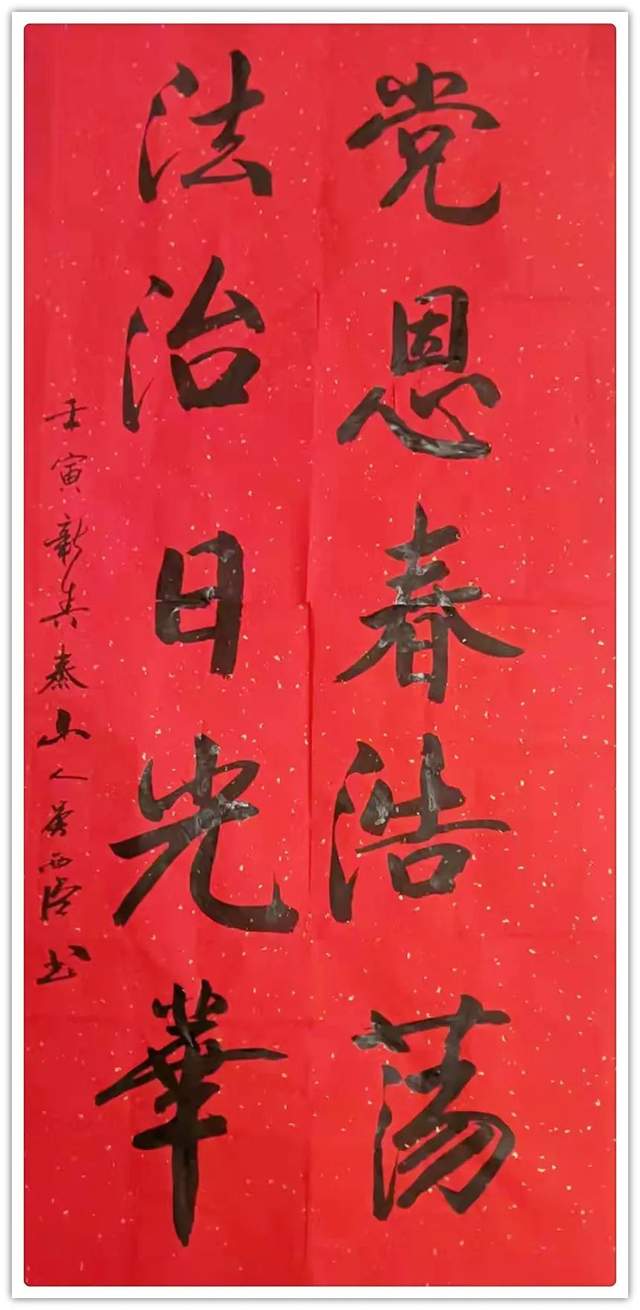 党恩春浩荡
法治日光華
壬寅新春泰山人西书